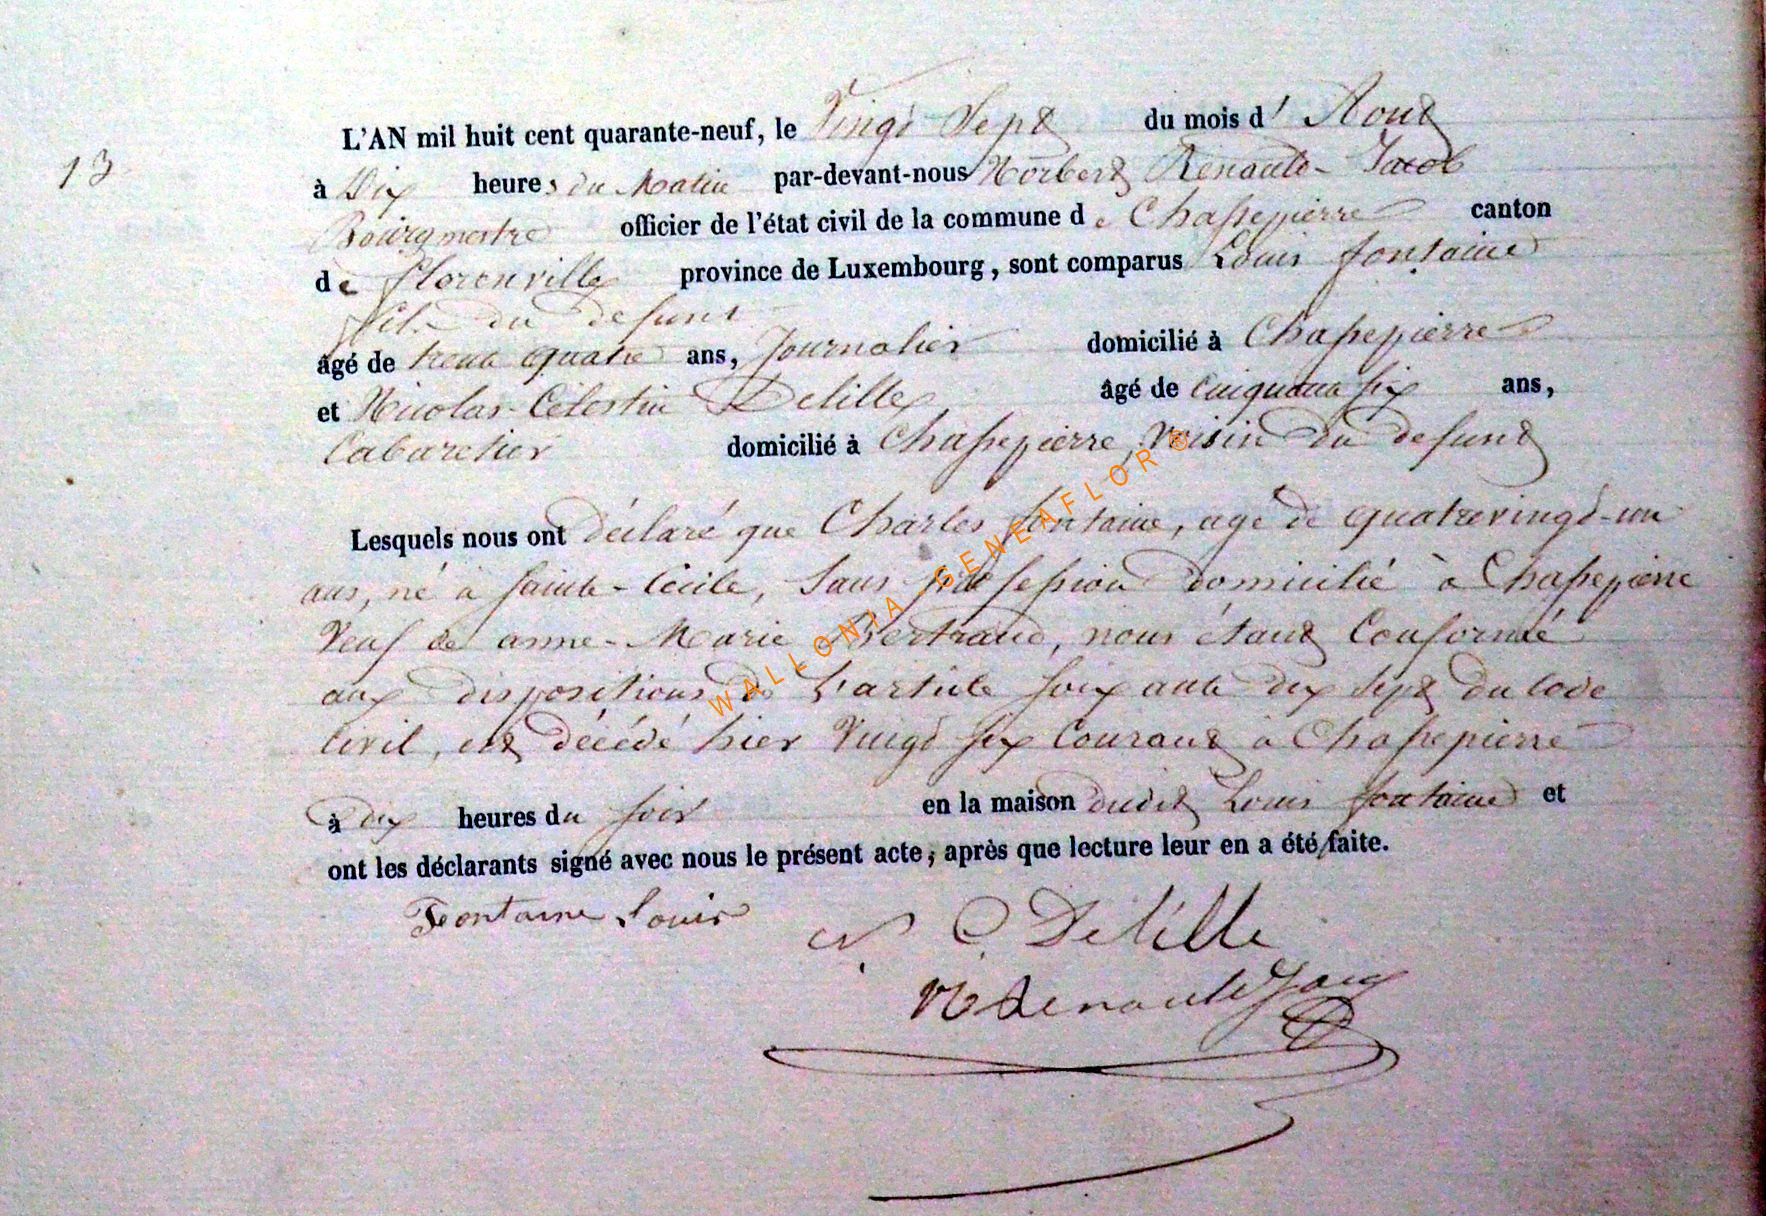 13
L'AN mil huit cent quarante-neuf, le Vingt Sept du mois d' Aout
à Dix heures du Matin par-devant-nous Norbert Renauld-Jacob
Bourgmestre officier de l'état civil de la commune de Chassepierre canton
de Florenville province de Luxembourg, sont comparus Louis fontaine
fils du defunt
âgé de trente quatre ans, Journalier domicilié à Chassepierre
et Nicolas-Célestin Delille âgé de Cinquante six ans,
Cabaretier domicilié à Chassepierre, Voisin du defunt
Lesquels nous ont déclaré que Charles fontaine, agé de quatrevingt-un
ans, né à Sainte-Cécile, Sans profession domicilié à Chassepierre
Veuf de anne-Marie Bertrand, nous étant Conformé
aux dispositions de l'article soixante dix sept du Code
Civil, est décédé hier Vingt six Courant à Chassepierre
à dix heures du soir en la maison dudit Louis fontaine et
ont les déclarants signé avec nous le présent acte, après que lecture leur en a été faite.
Fontaine Louis
N. C. Delille
WALLONIA GENEAFLOR®